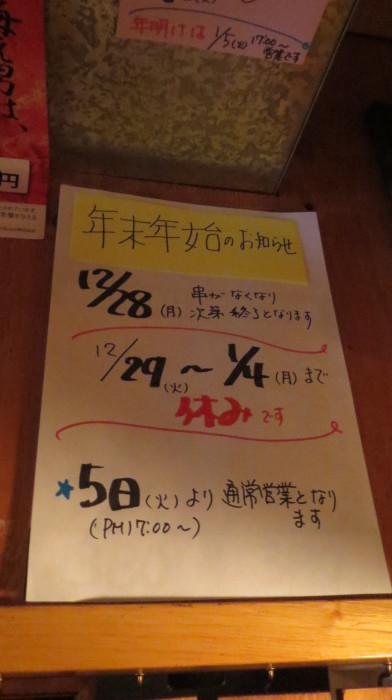 年明けは 1/5(火) 17:00〜
営業です
円
年末年始のお知らせ
12/28 (月) 串がなくなり
次第終了となります
12/29 (火) 〜 1/4 (月) まで
休みです
★5日 (火) より 通常営業となり
ます
(PM)7:00〜)